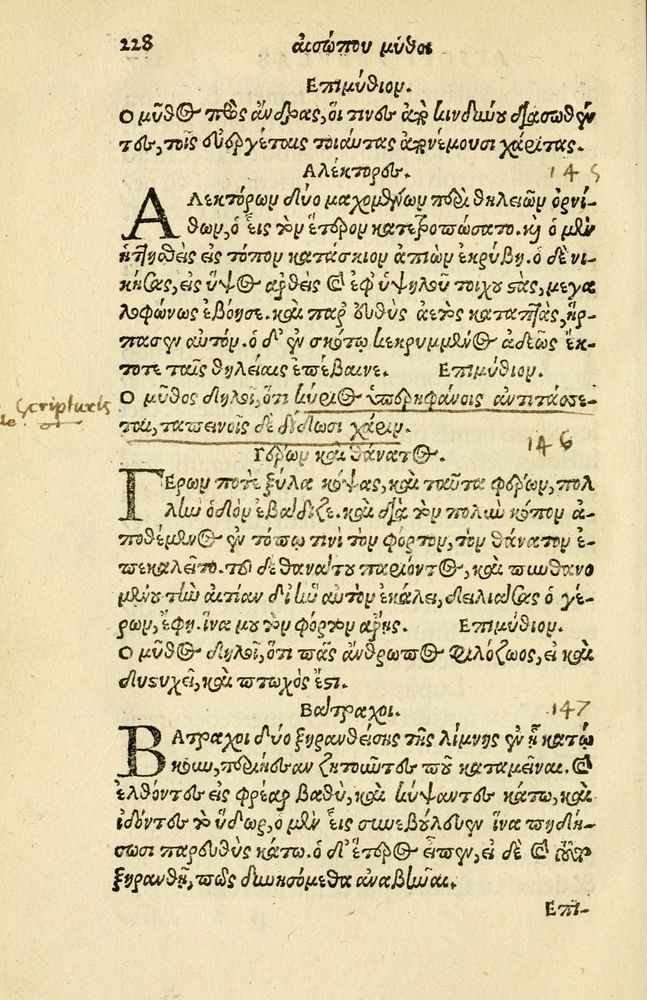 228 αἰσώπου μῦθοι
Ἐπιμύθιον.
Ο μῦθος πρὸς ἄνδρας, οἵ τινες ἀπὸ κινδύνου διασωθέν
τες, τοῖς εὐεργέταις τοιαύτας ἀπονέμουσι χάριτας.
Ἀλέκτορες. 145
ΑΛεκτόρων δύο μαχομένων περὶ θηλειῶν ὀρνί-
θων, ὁ εἷς τὸν ἕτερον κατετροπώσατο. καὶ ὁ μὲν
ἡττηθεὶς εἰς τόπον κατάσκιον ἀπιὼν ἐκρύβη. ὁ δὲ νι-
κήσας, εἰς ὕψος ἀρθεὶς καὶ ἐφ' ὑψηλοῦ τοίχου στὰς, μεγα
λοφώνως ἐβόησε. καὶ παρ' εὐθὺς ἀετὸς καταπτὰς, ἥρ-
πασεν αὐτόν. ὁ δ' ἐν σκότῳ κεκρυμμένος ἀδεῶς ἔκ-
τοτε ταῖς θηλείαις ἐπέβαινε. Ἐπιμύθιον.
Ο μῦθος δηλοῖ, ὅτι κύριος ὑπερηφάνοις ἀντιτάσσε-
ται, ταπεινοῖς δὲ δίδωσι χάριν.
Scripturis
de
Γέρων καὶ θάνατος. 146
ΓΕρων ποτὲ ξύλα κόψας, καὶ ταῦτα φέρων, πολ
λὴν ὁδὸν ἐβάδιζε. καὶ διὰ τὸν πολὺν κόπον ἀ-
ποθέμενος ἐν τόπῳ τινὶ τὸν φόρτον, τὸν θάνατον ἐ-
πεκαλεῖτο. τοῦ δὲ θανάτου παριόντος, καὶ πυνθανο
μένου τὴν αἰτίαν δι' ἣν αὐτὸν ἐκάλει, δειλιάσας ὁ γέ-
ρων, ἔφη. ἵνα μου τὸν φόρτον ἄρῃς. Ἐπιμύθιον.
Ο μῦθος δηλοῖ, ὅτι πᾶς ἄνθρωπος φιλόζωος, εἰ καὶ
δυστυχεῖ, καὶ πτωχός ἐστι.
Βάτραχοι. 147
ΒΑτραχοι δύο ξηρανθείσης τῆς λίμνης ἐν ᾗ κατῴ
κουν, περιῄεσαν ζητοῦντες ποῦ καταμεῖναι. καὶ
ἐλθόντες εἰς φρέαρ βαθὺ, καὶ κύψαντες κάτω, καὶ
ἰδόντες τὸ ὕδωρ, ὁ μὲν εἷς συνεβούλευεν ἵνα πηδή-
σωσι παρευθὺς κάτω. ὁ δ' ἕτερος εἶπεν, εἰ δὲ καὶ
ξηρανθῇ, πῶς δυνησόμεθα ἀναβῆναι.
Ἐπι-